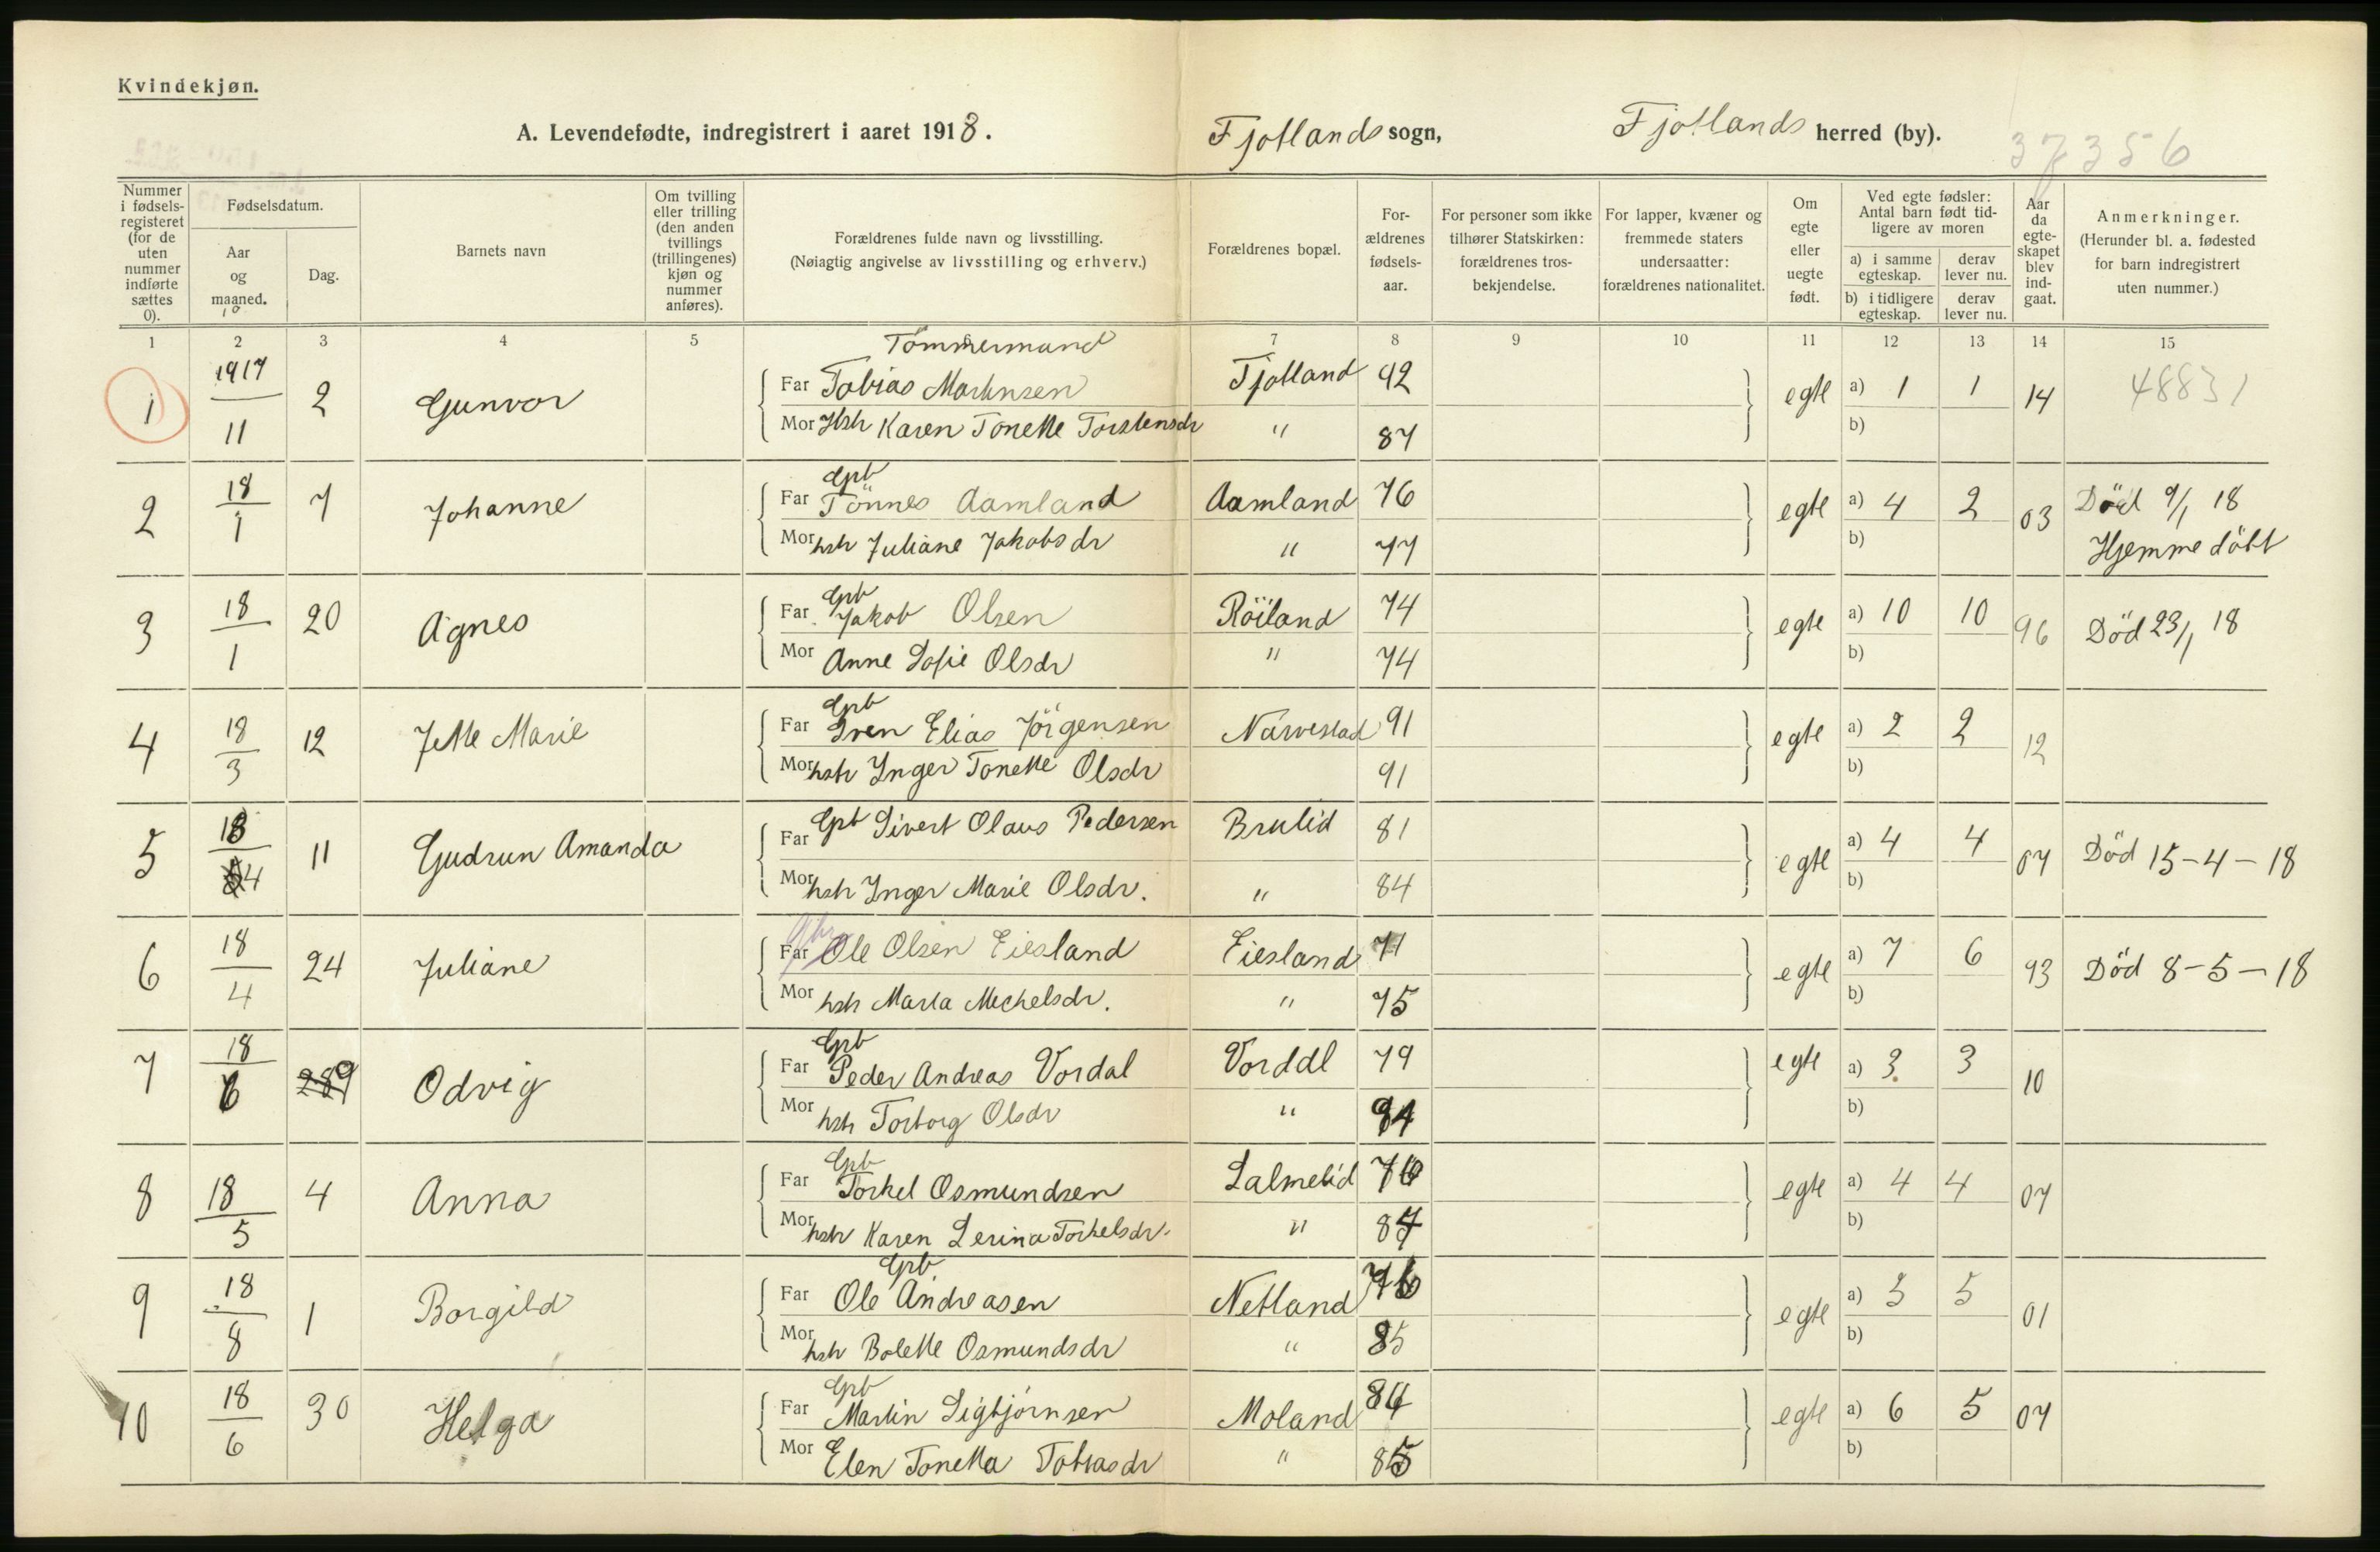 Kvindekjøn.
A. Levendefødte, indregistrert i aaret 1918. Fjotlands sogn, Fjotlands herred (by). 37356
Nummer i fødsels-registeret (for de uten nummer indførte sættes 0).
Fødselsdatum.
Aar og maaned.
Dag.
Barnets navn
Om tvilling eller trilling (den anden tvillings (trillingenes) kjøn og nummer anføres).
Forældrenes fulde navn og livsstilling.
(Nøiagtig angivelse av livsstilling og erhverv.)
Forældrenes bopæl.
For-ældrenes fødsels-aar.
For personer som ikke tilhører Statskirken: forældrenes tros-bekjendelse.
For lapper, kvæner og fremmede staters undersaatter: forældrenes nationalitet.
Om egte eller uegte født.
Ved egte fødsler: Antal barn født tid-ligere av moren
a) i samme egteskap. derav lever nu.
b) i tidligere egteskap. derav lever nu.
Aar da egte-skapet blev ind-gaat.
Anmerkninger.
(Herunder bl. a. fødested for barn indregistrert uten nummer.)
1 2 3 4 5 6 7 8 9 10 11 12 13 14 15
Tömmermand
1 1917/11 2 Gunvor Far Tobias Martinsen Fjotland 92 egte a) 1 1 14 48831
Mor Hstr Karen Tonette Torstensdr " 87 b)
Gpb
2 18/1 7 Johanne Far Tönnes Aamland Aamland 76 egte a) 4 2 03 Död 9/1 18
Mor hstr Juliane Jakobsdr " 77 b) Hjemmedöbt
Gpb
3 18/1 20 Agnes Far Jakob Olsen Röiland 74 egte a) 10 10 96 Död 23/1 18
Mor Anne Sofie Olsdr " 74 b)
Gpb
4 18/3 12 Jette Marie Far Sven Elias Jörgensen Narvestad 91 egte a) 2 2 12
Mor hstr Inger Tonette Olsdr 91 b)
5 18/4 11 Gudrun Amanda Far Gpb Sivert Olaus Pedersen Brulid 81 egte a) 4 4 07 Död 15-4-18
Mor hstr Inger Marie Olsdr. " 84 b)
6 18/4 24 Juliane Far Ole Olsen Eiesland Eiesland 71 egte a) 7 6 93 Död 8-5-18
Mor hstr Marta Mechelsdr. " 75 b)
Gpb
7 18/6 289 Odvig Far Peder Andreas Vordal Vorddl 79 egte a) 3 3 10
Mor hstr Torborg Olsdr " 84 b)
Gpb
8 18/5 4 Anna Far Torkel Osmundsen Salmelid 76 egte a) 4 4 07
Mor hstr Karen Serina Torkelsdr. " 87 b)
Gpb
9 18/8 1 Borgild Far Ole Andreasen Netland 76 egte a) 5 5 01
Mor hstr Bolette Osmundsdr " 85 b)
Gpb
10 18/6 30 Helga Far Martin Sigbjørnsen Moland 84 egte a) 6 5 07
Mor Elen Tonetta Tobiasdr " 85 b)